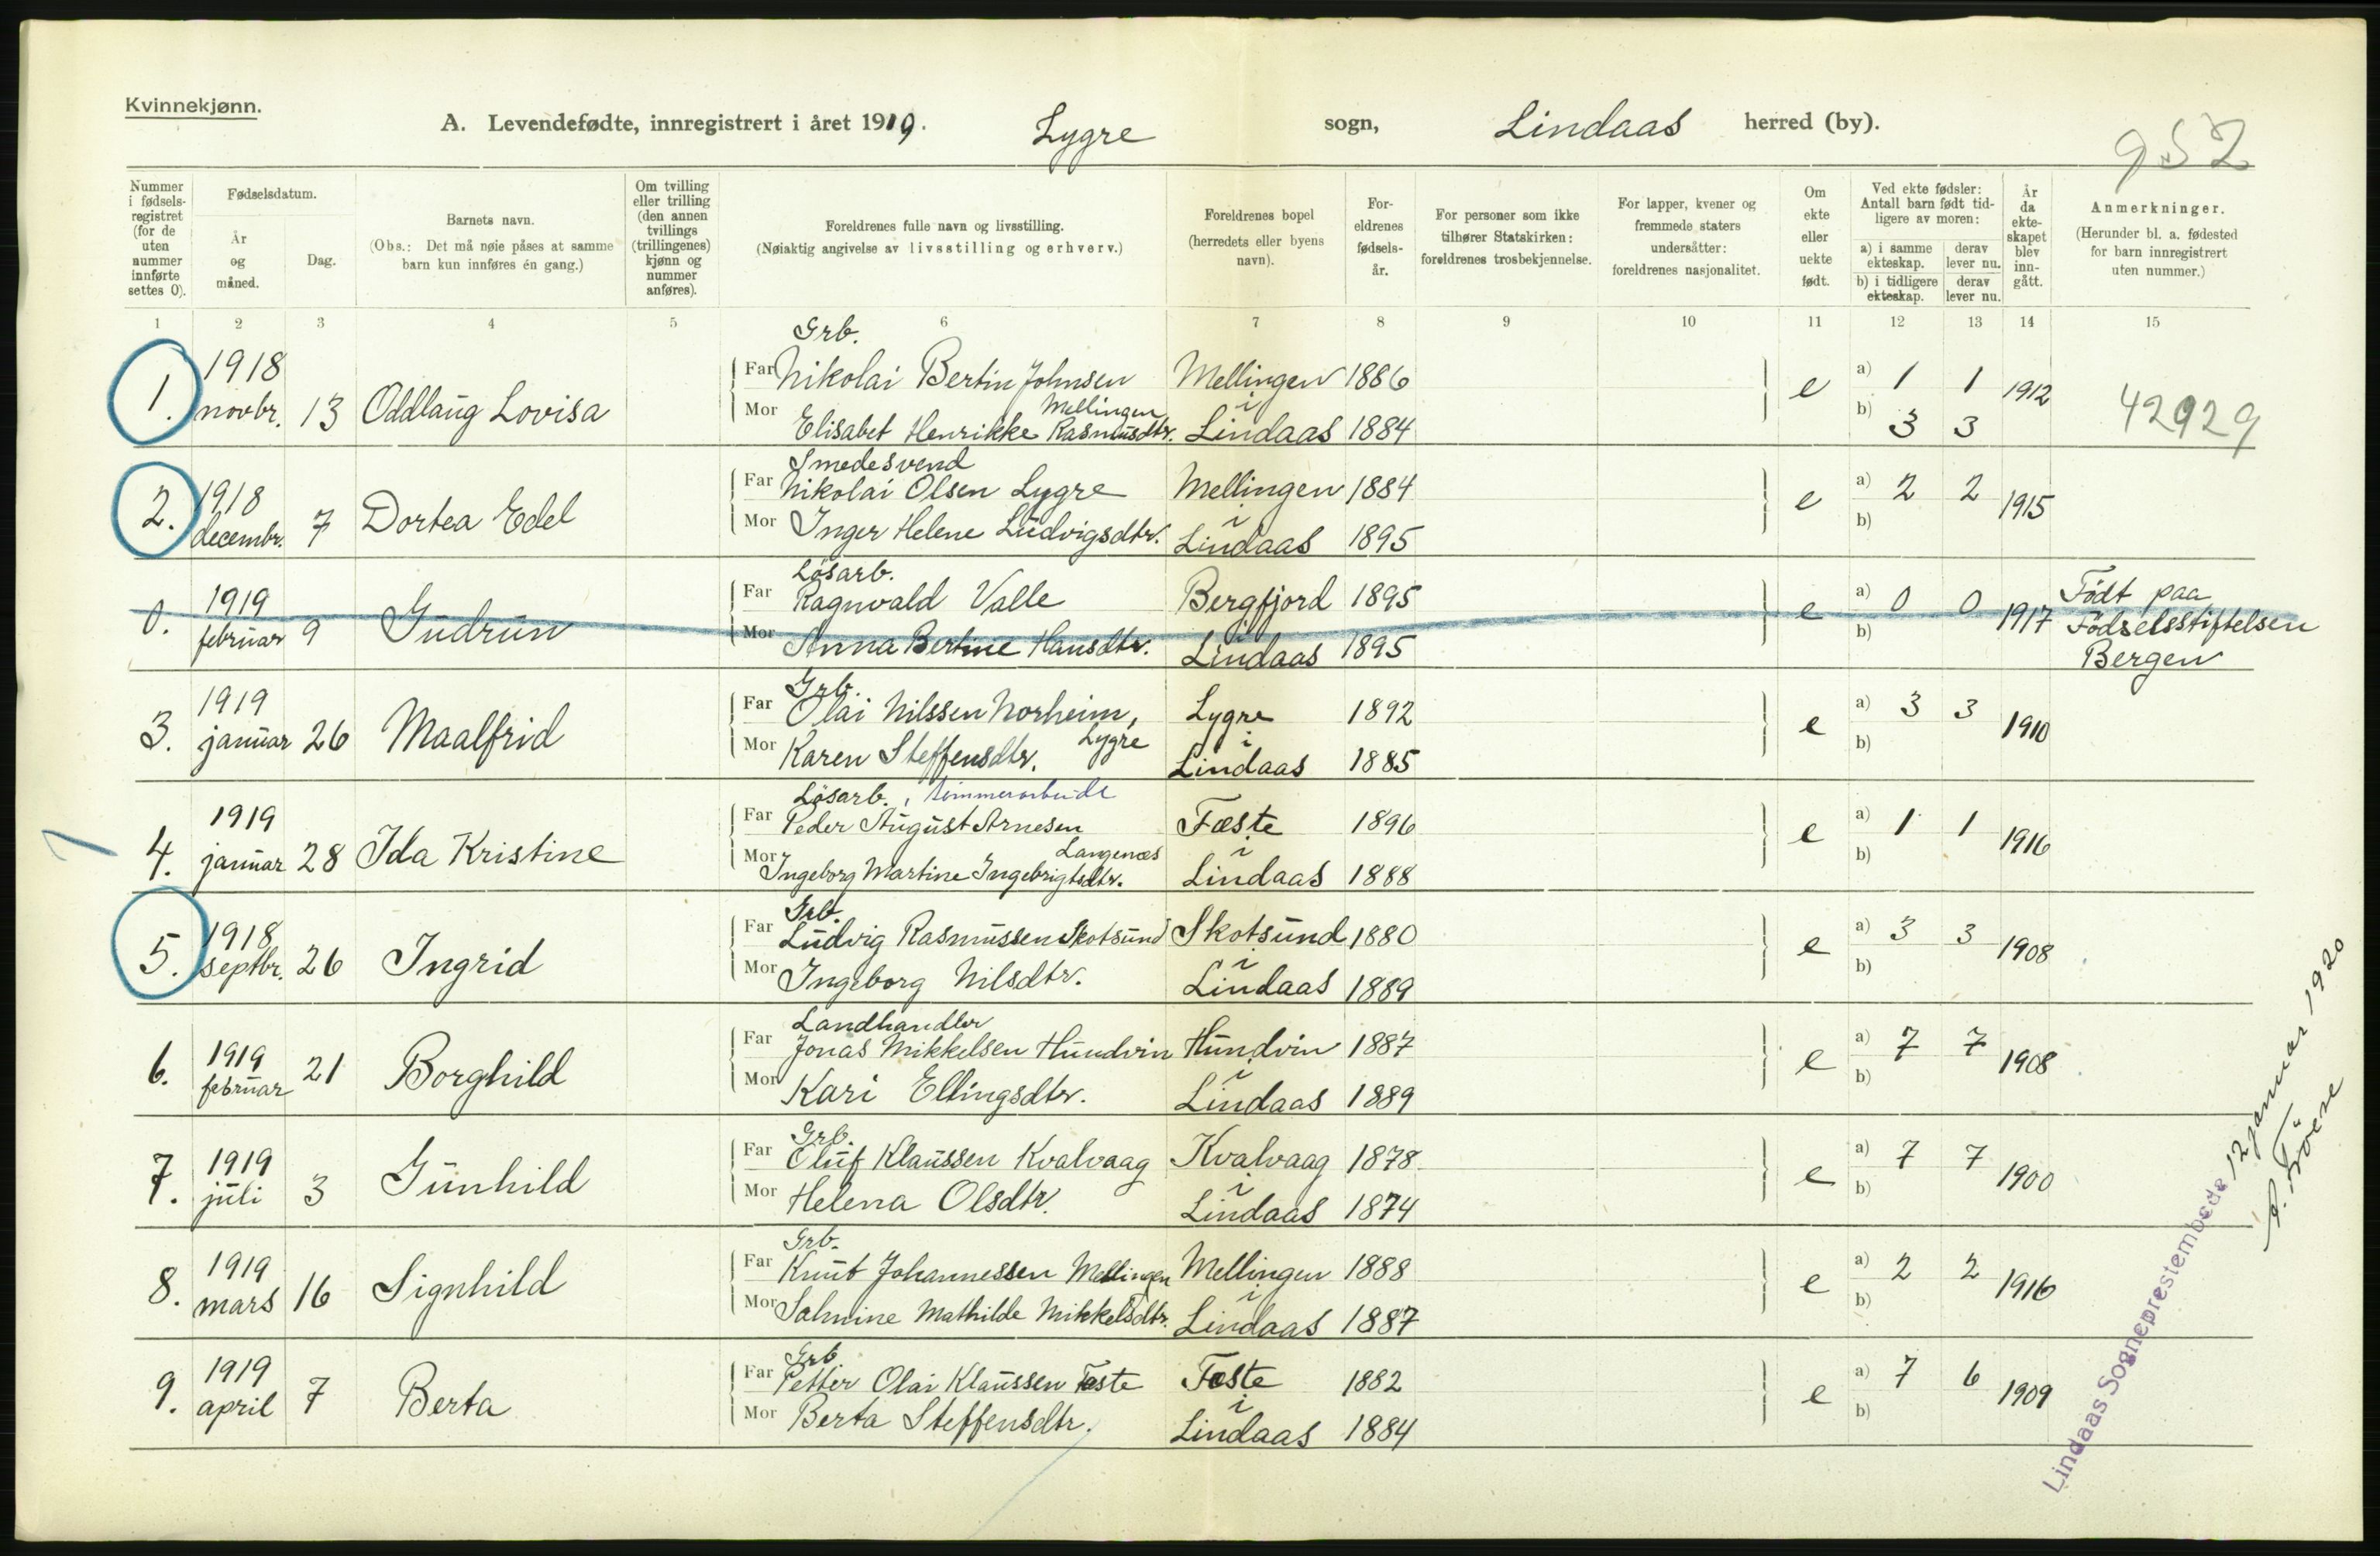 Kvinnekjønn.
A. Levendefødte, innregistrert i året 1919. Lygre sogn, Lindaas herred (by).
952
Nummer i fødsels-registret (for de uten nummer innførte settes 0).
Fødselsdatum.
År og måned.
Dag.
Barnets navn.
(Obs.: Det må nøie påses at samme barn kun innføres én gang.)
Om tvilling eller trilling (den annen tvillings (trillingenes) kjønn og nummer anføres).
Foreldrenes fulle navn og livsstilling.
(Nøiaktig angivelse av livsstilling og erhverv.)
Foreldrenes bopel (herredets eller byens navn).
For-eldrenes fødsels-år.
For personer som ikke tilhører Statskirken: foreldrenes trosbekjennelse.
For lapper, kvener og fremmede staters undersåtter: foreldrenes nasjonalitet.
Om ekte eller uekte født.
Ved ekte fødsler: Antall barn født tid-ligere av moren:
a) i samme ekteskap. derav lever nu.
b) i tidligere ekteskap. derav lever nu.
År da ekte-skapet blev inn-gått.
Anmerkninger.
(Herunder bl. a. fødested for barn innregistrert uten nummer.)
1 2 3 4 5 6 7 8 9 10 11 12 13 14 15
Grb.
1. 1918 novbr. 13 Oddlaug Lovisa
Far Nikolai Bertin Johnsen Mellingen 1886
Mellingen i
Mor Elisabet Henrikke Rasmusdtr. Lindaas 1884
e a) 1 1 1912
b) 3 3
42929
Smedesvend
2. 1918 decembr. 7 Dortea Edel
Far Nikolai Olsen Lygre Mellingen 1884
Mor Inger Helene Ludvigsdtr. i Lindaas 1895
e a) 2 2 1915
b)
Løsarb.
0. 1919 februar 9 Gudrun
Far Ragnvald Valle Bergfjord 1895
Mor Anna Bertine Hansdtr. i Lindaas 1895
e a) 0 0 1917
b)
Födt paa
Födselsstiftelsen
Bergen
Grb.
3. 1919 januar 26 Maalfrid
Far Olai Nilssen Norheim, Lygre 1892
Lygre i
Mor Karen Steffensdtr. Lindaas 1885
e a) 3 3 1910
b)
Løsarb., tømmerarbeide
4. 1919 januar 28 Ida Kristine
Far Peder August Arnesen Fæste 1896
Langenæs i
Mor Ingeborg Martine Ingebrigtsdtr. Lindaas 1888
e a) 1 1 1916
b)
Grb.
5. 1918 septbr. 26 Ingrid
Far Ludvig Rasmussen Skotsund Skotsund 1880
Mor Ingeborg Nilsdtr. i Lindaas 1889
e a) 3 3 1908
b)
Landhandler
6. 1919 februar 21 Borghild
Far Jonas Mikkelsen Hundvin Hundvin 1887
Mor Kari Ellingsdtr. i Lindaas 1889
e a) 7 7 1908
b)
Grb.
7. 1919 juli 3 Gunhild
Far Eluf Klaussen Kvalvaag Kvalvaag 1878
Mor Helena Olsdtr. i Lindaas 1874
e a) 7 7 1900
b)
Grb.
8. 1919 mars 16 Signhild
Far Knut Johannessen Mellingen Mellingen 1888
Mor Salmine Mathilde Mikkelsdtr. i Lindaas 1887
e a) 2 2 1916
b)
Grb.
9. 1919 april 7 Berta
Far Petter Olai Klaussen Fæste Fæste 1882
Mor Berta Steffensdtr. i Lindaas 1884
e a) 7 6 1909
b)
Lindaas Sogneprestembede 12 januar 1920